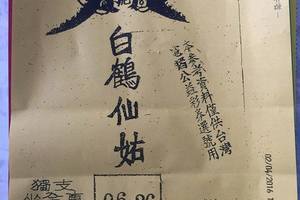 白鶴仙姑
本參考資料僅供台灣
公益彩券選號用
獨支
06 26
02/04/2016